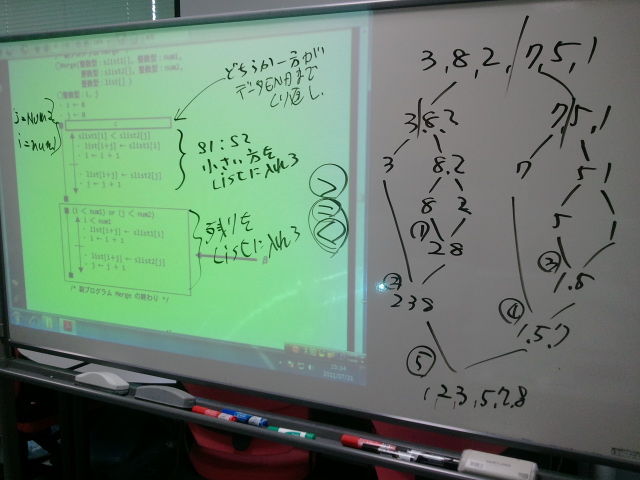 整数型: slist1[], 整数型: num1,
整数型: slist2[], 整数型: num2,
整数型: list[]
整数型: i, j
・i ← 0
・j ← 0
c
slist1[i] < slist2[j]
・list[i+j] ← slist1[i]
・i ← i + 1
・list[i+j] ← slist2[j]
・j ← j + 1
(i < num1) or (j < num2)
i < num1
・list[i+j] ← slist1[i]
・i ← i + 1
・list[i+j] ← slist2[j]
・j ← j + 1
/* 副プログラム Merge の終わり */
j=num2
i=num1
どちらか一方が
データEND まで
くり返し
S1 : S2
小さい方を
listに入れる
残りを
listに入れる
3, 8, 2, 7, 5, 1
3, 8, 2
7, 5, 1
3
8, 2
7
5, 1
8
2
5
1
①
2 8
③
1.5
②
2 3 8
④
1.5.7
⑤
1, 2, 3, 5, 7, 8